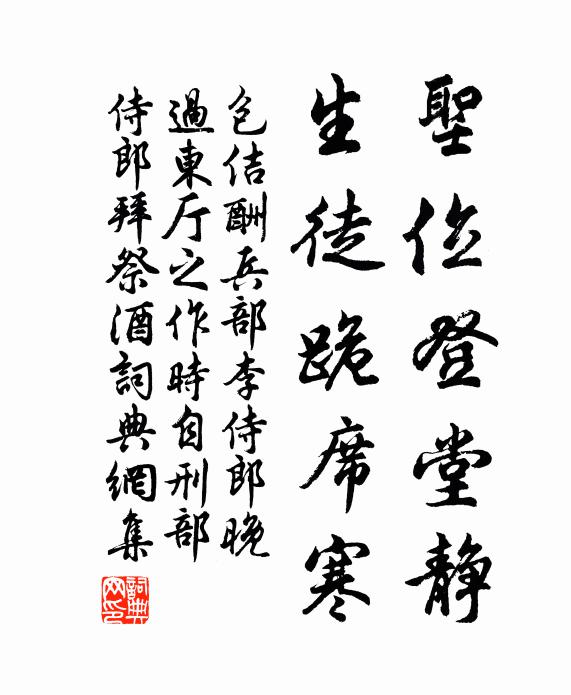 聖位登堂静
生徒跪席寒
包佶酬兵部李侍郎晚
過東厅之作時自刑部
侍郎拜祭酒詞典網集